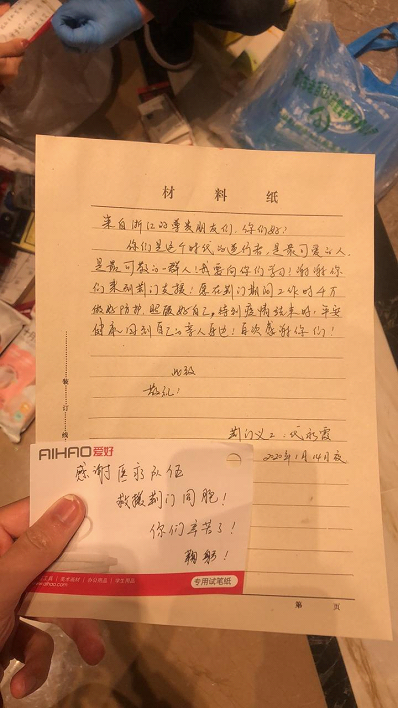 材料纸
来自浙江的尊敬朋友们，你们好！
你们是这个时代的逆行者，是最可爱的人，
是最可敬的一群人！我要向你们学习！谢谢你
们来到荆门支援！愿在荆门期间工作时千万
做好防护，照顾好自己，待到疫情结束时，平安
健康回到自己的亲人身边！再次感谢你们！
此致
敬礼！
荆门义工：
2020年1月14日夜
装订线
AIHAO爱好
感谢医疗队伍
救援荆门同胞！
你们辛苦了！
鞠躬！
专用试笔纸
第 页